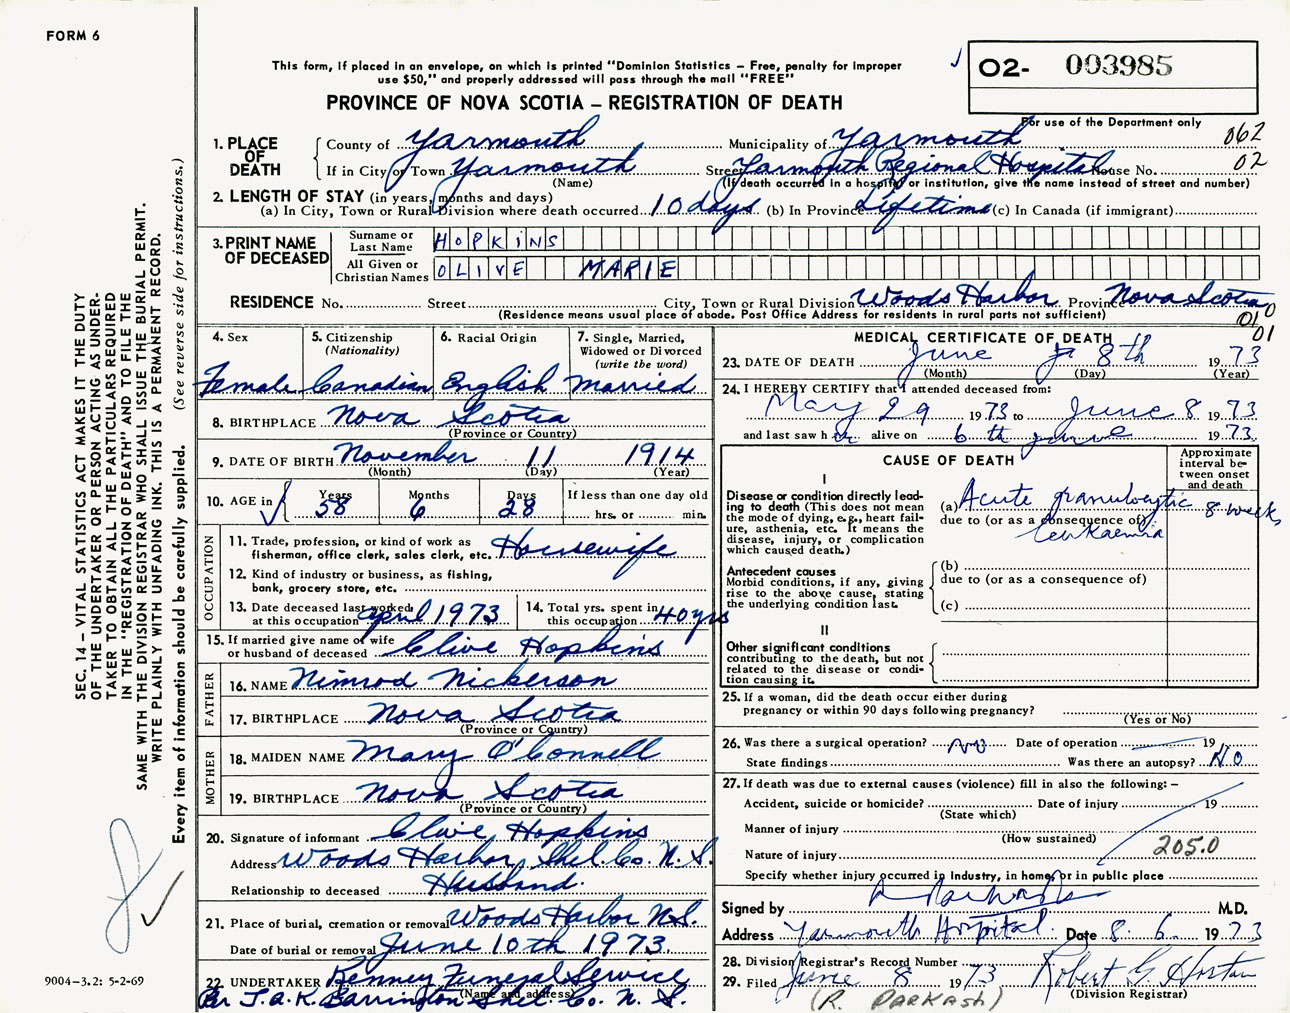 FORM 6
This form, if placed in an envelope, on which is printed "Dominion Statistics – Free, penalty for improper
use $50," and properly addressed will pass through the mail "FREE"
PROVINCE OF NOVA SCOTIA – REGISTRATION OF DEATH
O2- 003985
For use of the Department only
062
02
1. PLACE OF DEATH
County of Yarmouth Municipality of Yarmouth
If in City or Town Yarmouth Street Yarmouth Regional Hospital House No.
(Name) (If death occurred in a hospital or institution, give the name instead of street and number)
2. LENGTH OF STAY (in years, months and days)
(a) In City, Town or Rural Division where death occurred 10 days (b) In Province Lifetime (c) In Canada (if immigrant)
3. PRINT NAME OF DECEASED
Surname or Last Name HOPKINS
All Given or Christian Names OLIVE MARIE
RESIDENCE No. Street City, Town or Rural Division Woods Harbor Province Nova Scotia
(Residence means usual place of abode. Post Office Address for residents in rural parts not sufficient)
010
01
4. Sex 5. Citizenship (Nationality) 6. Racial Origin 7. Single, Married, Widowed or Divorced (write the word)
Female Canadian English Married
8. BIRTHPLACE Nova Scotia
(Province or Country)
9. DATE OF BIRTH November 11 1914
(Month) (Day) (Year)
10. AGE in Years 58 Months 6 Days 28 If less than one day old
hrs. or min.
OCCUPATION
11. Trade, profession, or kind of work as
fisherman, office clerk, sales clerk, etc. Housewife
12. Kind of industry or business, as fishing,
bank, grocery store, etc.
13. Date deceased last worked
at this occupation april 1973
14. Total yrs. spent in
this occupation 40 yrs
15. If married give name of wife
or husband of deceased Clive Hopkins
FATHER
16. NAME Nimrod Nickerson
17. BIRTHPLACE Nova Scotia
(Province or Country)
MOTHER
18. MAIDEN NAME Mary O'Connell
19. BIRTHPLACE Nova Scotia
(Province or Country)
20. Signature of informant Clive Hopkins
Address Woods Harbor, Shel. Co. N. S.
Relationship to deceased Husband.
21. Place of burial, cremation or removal Woods Harbor N.S.
Date of burial or removal June 10th 1973
22. UNDERTAKER Kenney Funeral Service
(Name and address)
Per J.A.K. Barrington Shel. Co. N. S.
MEDICAL CERTIFICATE OF DEATH
23. DATE OF DEATH June 8th 1973
(Month) (Day) (Year)
24. I HEREBY CERTIFY that I attended deceased from:
May 29 1973 to June 8 1973
and last saw her alive on 6th june 1973
CAUSE OF DEATH
Approximate interval between onset and death
I
Disease or condition directly lead-
ing to death (This does not mean
the mode of dying, e.g., heart fail-
ure, asthenia, etc. It means the
disease, injury, or complication
which caused death.)
(a) Acute granulocytic 8 weeks
due to (or as a consequence of)
leukaemia
Antecedent causes
Morbid conditions, if any, giving
rise to the above cause, stating
the underlying condition last.
(b)
due to (or as a consequence of)
(c)
II
Other significant conditions
contributing to the death, but not
related to the disease or condi-
tion causing it.
25. If a woman, did the death occur either during
pregnancy or within 90 days following pregnancy?
(Yes or No)
26. Was there a surgical operation? No Date of operation 19
State findings Was there an autopsy? No
27. If death was due to external causes (violence) fill in also the following: –
Accident, suicide or homicide? Date of injury 19
(State which)
Manner of injury
(How sustained)
Nature of injury 205.0
Specify whether injury occurred in Industry, in home, or in public place
Signed by R Parkash M.D.
Address Yarmouth Hospital. Date 8. 6. 1973
28. Division Registrar's Record Number
29. Filed June 8 1973 Robert G. Horton
(Division Registrar)
(R. PARKASH)
SEC. 14 – VITAL STATISTICS ACT MAKES IT THE DUTY
OF THE UNDERTAKER OR PERSON ACTING AS UNDER-
TAKER TO OBTAIN ALL THE PARTICULARS REQUIRED
IN THE "REGISTRATION OF DEATH" AND TO FILE THE
SAME WITH THE DIVISION REGISTRAR WHO SHALL ISSUE THE BURIAL PERMIT.
WRITE PLAINLY WITH UNFADING INK. THIS IS A PERMANENT RECORD.
Every item of information should be carefully supplied. (See reverse side for instructions.)
9004–3.2: 5-2-69